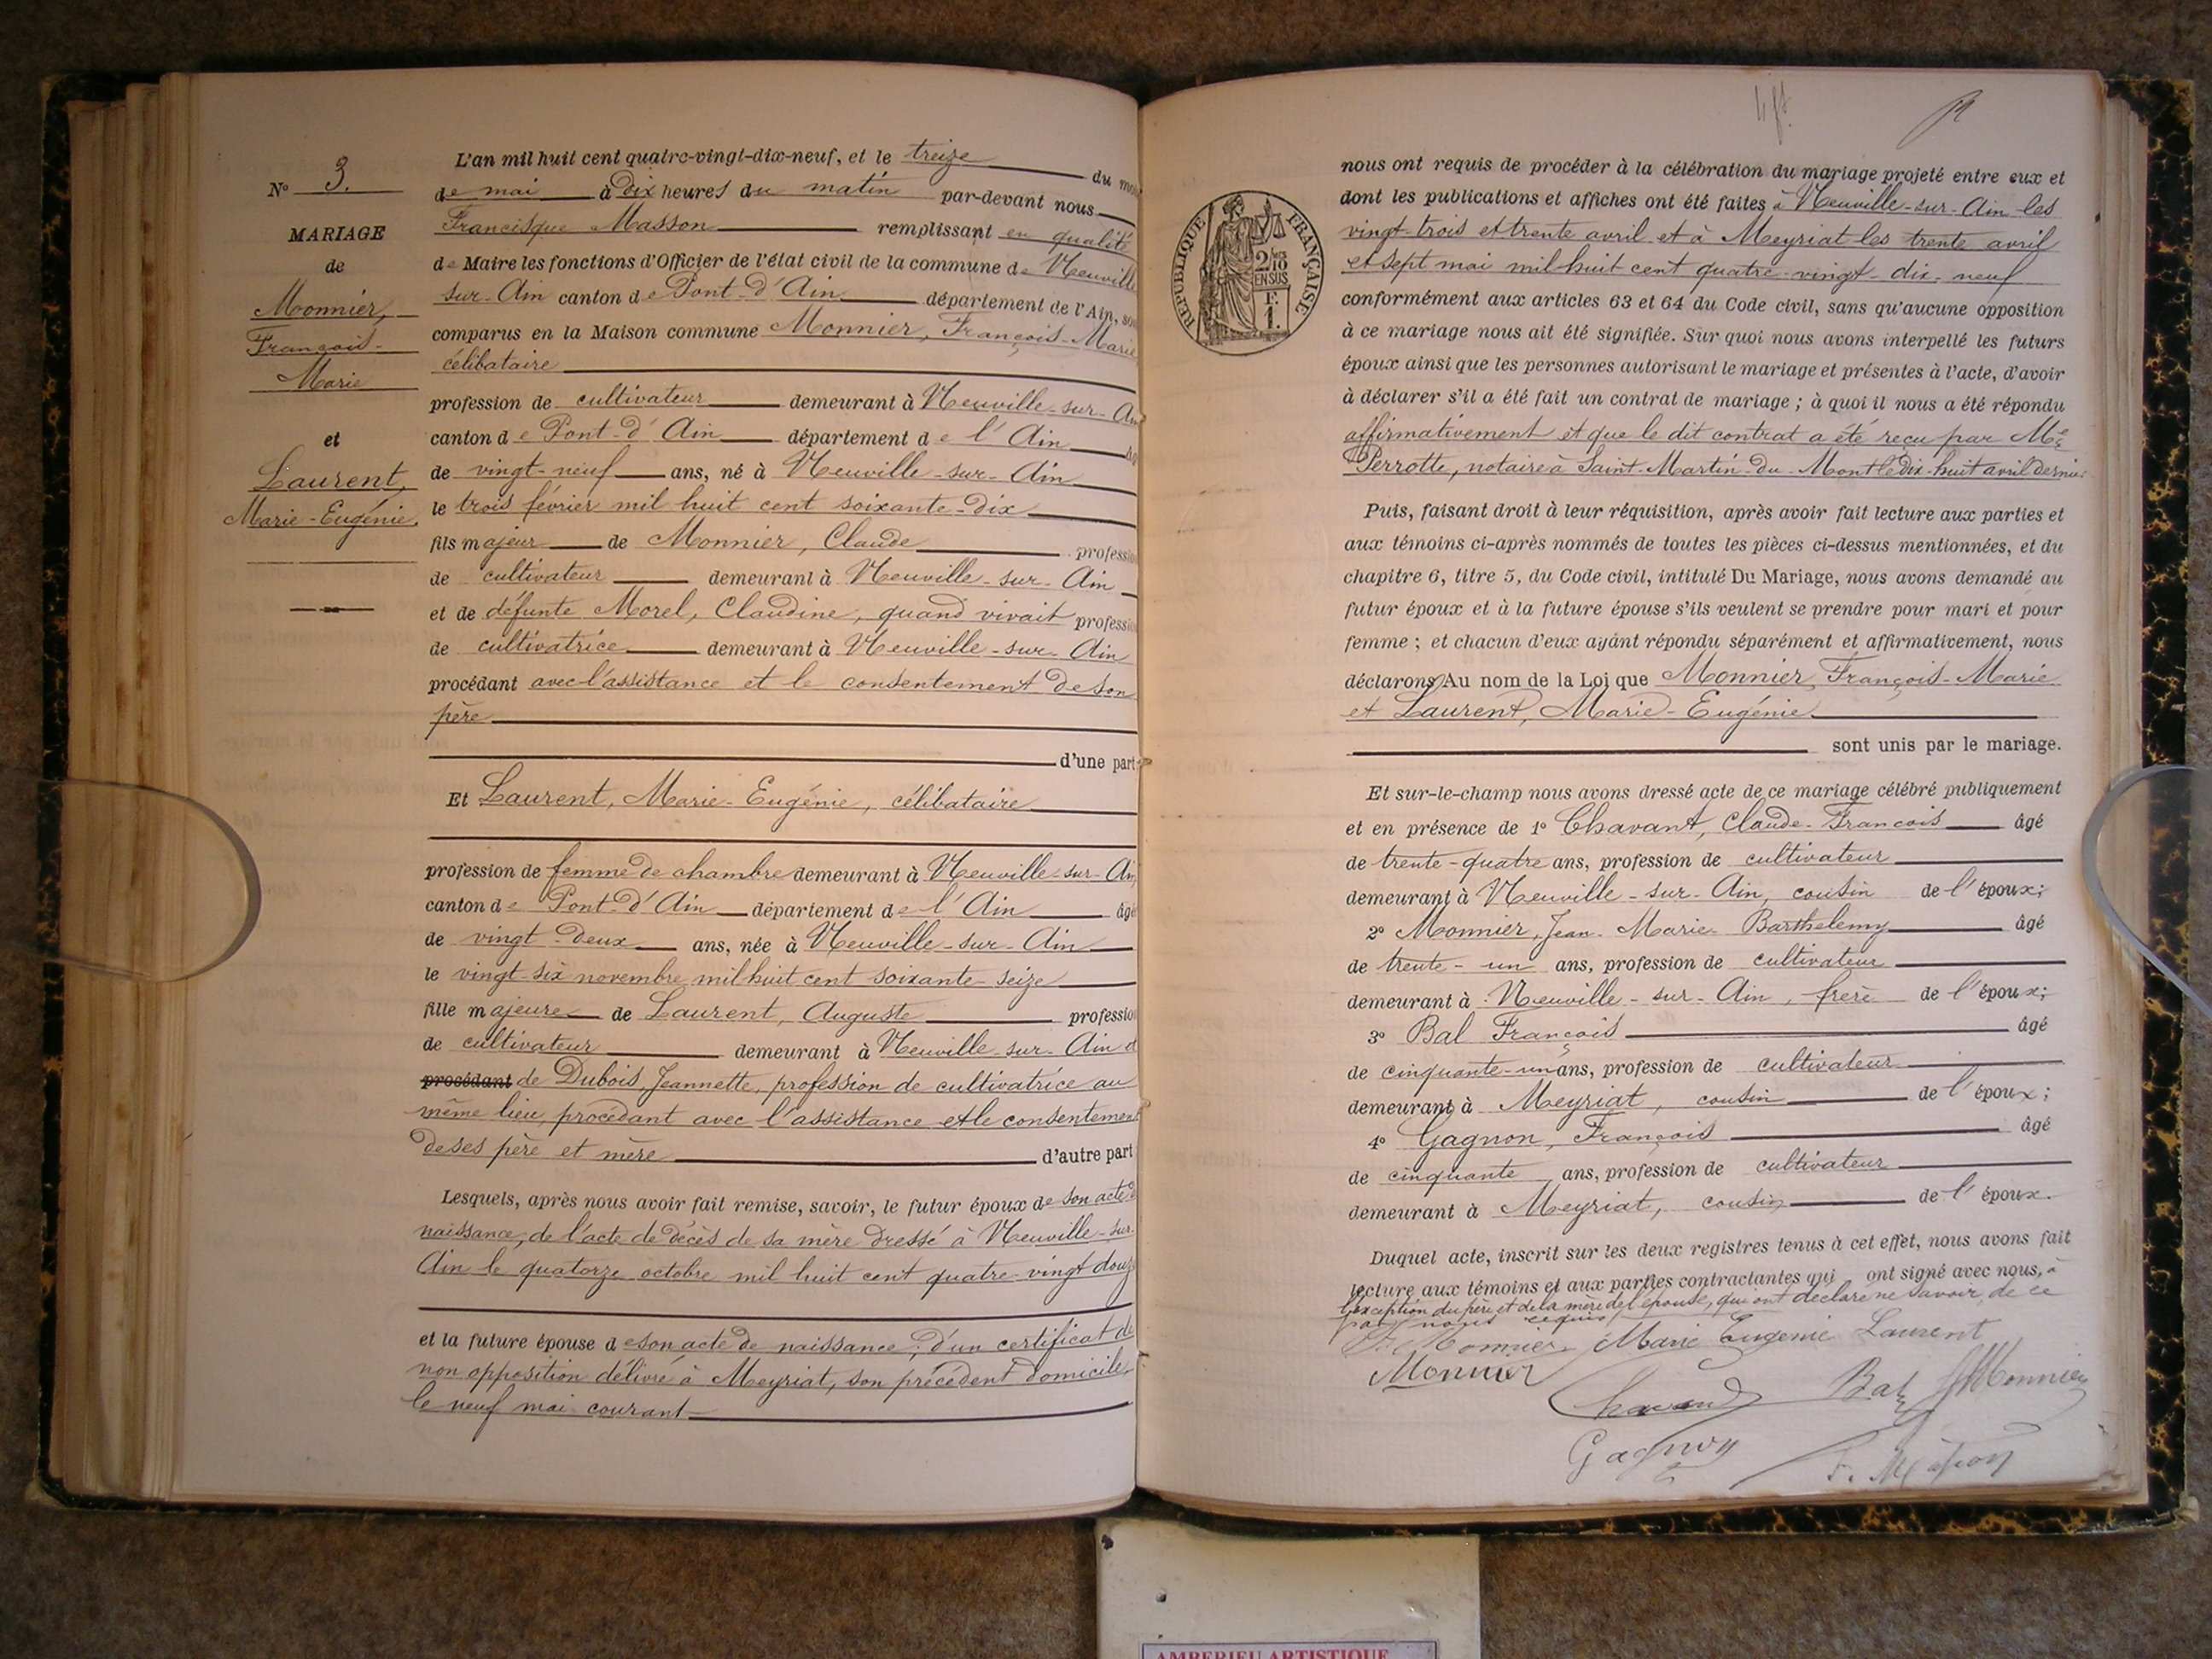 N° 3.
MARIAGE
de
Monnier,
François-
Marie
et
Laurent,
Marie-Eugénie.
L'an mil huit cent quatre-vingt-dix-neuf, et le treize du mois
de mai à Dix heures du matin par-devant nous
Francisque Masson remplissant en qualité
de Maire les fonctions d'Officier de l'état civil de la commune de Neuville
sur-Ain canton de Pont-d'Ain département de l'Ain, sont
comparus en la Maison commune Monnier, François-Marie
célibataire
profession de cultivateur demeurant à Neuville-sur-Ain
canton de Pont-d'Ain département de l'Ain âgé
de vingt-neuf ans, né à Neuville-sur-Ain
le trois février mil huit cent soixante-dix
fils majeur de Monnier, Claude profession
de cultivateur demeurant à Neuville-sur-Ain
et de défunte Morel, Claudine, quand vivait profession
de cultivatrice demeurant à Neuville-sur-Ain
procédant avec l'assistance et le consentement de son
père
d'une part
Et Laurent, Marie-Eugénie, célibataire
profession de femme de chambre demeurant à Neuville-sur-Ain
canton de Pont-d'Ain département de l'Ain âgé
de vingt-deux ans, née à Neuville-sur-Ain
le vingt-six novembre mil huit cent soixante-seize
fille majeure de Laurent, Auguste profession
de cultivateur demeurant à Neuville-sur-Ain et
procédant de Dubois, Jeannette, profession de cultivatrice au
même lieu, procédant avec l'assistance et le consentement
de ses père et mère d'autre part
Lesquels, après nous avoir fait remise, savoir, le futur époux de son acte de
naissance, de l'acte de décès de sa mère dressé à Neuville-sur-
Ain le quatorze octobre mil huit cent quatre-vingt douze
et la future épouse de son acte de naissance, d'un certificat de
non opposition délivré à Meyriat, son précédent domicile,
le neuf mai courant
nous ont requis de procéder à la célébration du mariage projeté entre eux et
dont les publications et affiches ont été faites à Neuville-sur-Ain les
vingt-trois et trente avril et à Meyriat les trente avril
et sept mai mil huit cent quatre-vingt-dix-neuf
RÉPUBLIQUE FRANÇAISE
2/10 EN SUS
F.
1.
conformément aux articles 63 et 64 du Code civil, sans qu'aucune opposition
à ce mariage nous ait été signifiée. Sur quoi nous avons interpellé les futurs
époux ainsi que les personnes autorisant le mariage et présentes à l'acte, d'avoir
à déclarer s'il a été fait un contrat de mariage ; à quoi il nous a été répondu
affirmativement et que le dit contrat a été reçu par Me
Perrotte, notaire à Saint-Martin-du-Mont le dix-huit avril dernier
Puis, faisant droit à leur réquisition, après avoir fait lecture aux parties et
aux témoins ci-après nommés de toutes les pièces ci-dessus mentionnées, et du
chapitre 6, titre 5, du Code civil, intitulé Du Mariage, nous avons demandé au
futur époux et à la future épouse s'ils veulent se prendre pour mari et pour
femme ; et chacun d'eux ayant répondu séparément et affirmativement, nous
déclarons Au nom de la Loi que Monnier, François-Marie
et Laurent, Marie-Eugénie
sont unis par le mariage.
Et sur-le-champ nous avons dressé acte de ce mariage célébré publiquement
et en présence de 1° Chavant, Claude-François âgé
de trente-quatre ans, profession de cultivateur
demeurant à Neuville-sur-Ain, cousin de l'époux;
2° Monnier, Jean-Marie-Barthelemy âgé
de trente-un ans, profession de cultivateur
demeurant à Neuville-sur-Ain, frère de l'époux;
3° Bal François âgé
de cinquante-un ans, profession de cultivateur
demeurant à Meyriat, cousin de l'époux;
4° Gagnon, François âgé
de cinquante ans, profession de cultivateur
demeurant à Meyriat, cousin de l'époux.
Duquel acte, inscrit sur les deux registres tenus à cet effet, nous avons fait
lecture aux témoins et aux parties contractantes qui ont signé avec nous, à
l'exception du père et de la mère de l'épouse, qui ont déclaré ne savoir, de ce
par nous requis,
F. Monnier Marie Eugenie Laurent
Monnier
Chavand Bal JMonnier
Gagnon F. Masson
AMBERIEU ARTISTIQUE